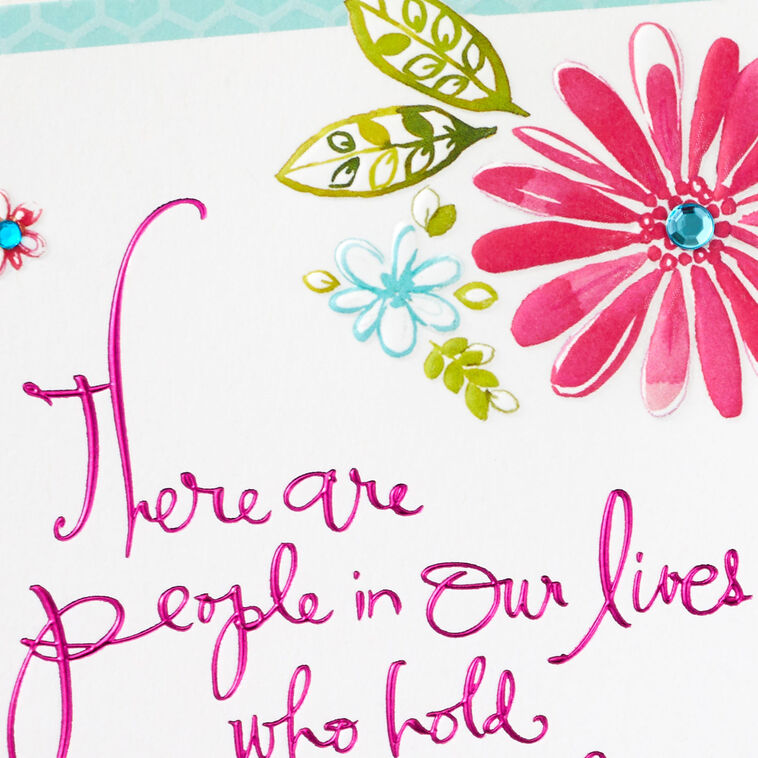 There are
people in our lives
who hold